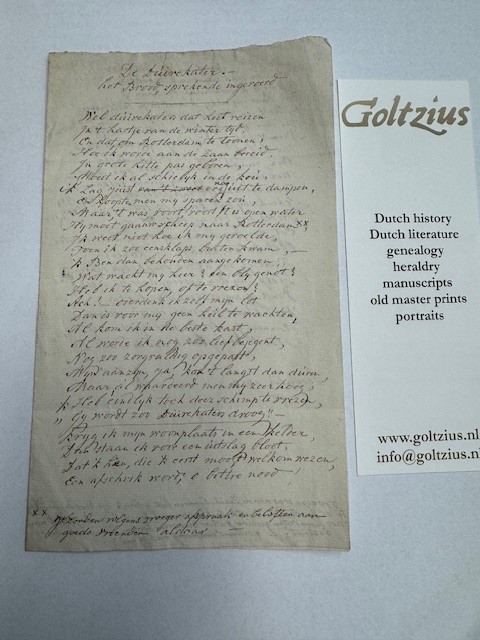 De Duivekater. —
het Brood, sprekende ingevoerd
Wel duivekaten dat heet reizen
In 't hartje van de winter tijd,
En dat om Rotterdam te toonen,
Hoe ik worde aan de Zaan bereid.
In groote hitte pas geboren,
Moest ik al schielijk in de kou,
Ik lag juist nog uit te dampen,
En hoopte, men my sparen zou,
Maar 't was, voort, voort, 't is open water
Gy moet gaan scheep naar Rotterdam xx
Ik weet niet hoe ik my gevoelde,
Toen ik zoo eensklaps buiten kwam, —
'k Ben dan behouden aangekomen!
Wat wacht my hier? een bly genot?
Heb ik te hopen, of te vreezen?
Ach! — overdenk ik zelf myn lot
Dan is voor my geen heil te wachten,
Al kom ik in de beste kast,
Al worde ik nog zoo lief bejegent,
Nog zoo zorgvuldig opgepast,
Myn aanzyn, ja, kan 't langst dan duren,
Maar, al waardeerd men my zeer hoog,
'k Heb eindlyk toch dees schimp te vreezen,
„ Gy wordt zoo Duivekaters droog!! —
Kryg ik myn woonplaats in een kelder,
Dan staan ik voor een uitslag bloot,
Dat ik hen, die ik eerst mogt welkom wezen,
Een afschrik wordt, o bittre nood!
xx gezonden volgens vroeger afspraak en beloften aan
goede vrienden aldaar
Goltzius
Dutch history
Dutch literature
genealogy
heraldry
manuscripts
old master prints
portraits
www.goltzius.nl
info@goltzius.nl